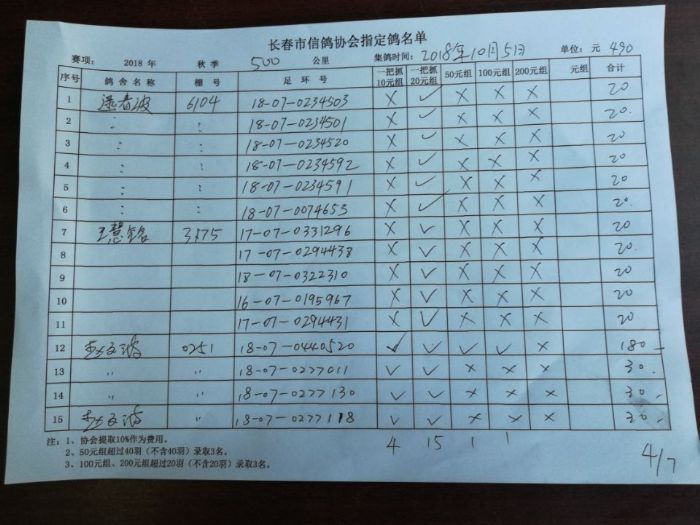 长春市信鸽协会指定鸽名单
赛项: 2018 年 秋季 500 公里 集鸽时间: 2018年10月5日 单位: 元 490
序号 鸽舍名称 棚号 足环号 一把抓10元组 一把抓20元组 50元组 100元组 200元组 元组 合计
1 6104 18-07-0234503 × ✓ × × × 20
2 〃 〃 18-07-0234501 × ✓ × × × 20.
3 〃 〃 18-07-0234520 × ✓ × × × 20
4 〃 〃 18-07-0234592 × ✓ × × × 20
5 〃 〃 18-07-0234591 × ✓ × × × 20
6 〃 〃 18-07-0074653 × ✓ × × × 20.
7 王慧铭 3575 17-07-0331296 × ✓ × × × 20
8 17-07-0294438 × ✓ × × × 20.
9 18-07-0322310 × ✓ × × × 20
10 16-07-0195967 × ✓ × × × 20.
11 17-07-0294431 × ✓ × × × 20
12 0251 18-07-0440520 ✓ ✓ ✓ ✓ × 180-
13 〃 〃 18-07-0277011 ✓ ✓ × × × 30.
14 〃 〃 18-07-0277130 ✓ ✓ × × × 30.
15 〃 18-07-0277118 ✓ ✓ × × × 30-
4 15 1 1
注: 1、协会提取10%作为费用。
2、50元组超过40羽（不含40羽）录取3名。
3、100元组、200元组超过20羽（不含20羽）录取3名。
4/7